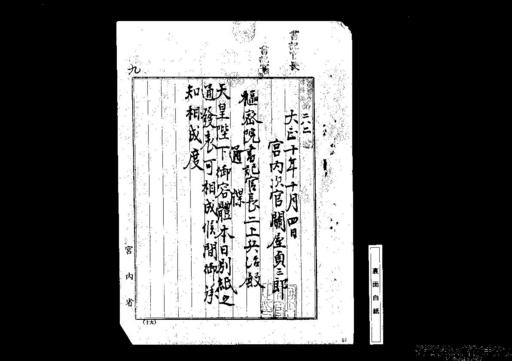 書記官長
九
二二
大正十年十月四日
宮内次官關屋貞三郎
樞密院書記官長二上兵治殿
通牒
天皇陛下御容體本日別紙之
通發表可相成候間御承
知相成度
宮内省
(十九)
裏面白紙